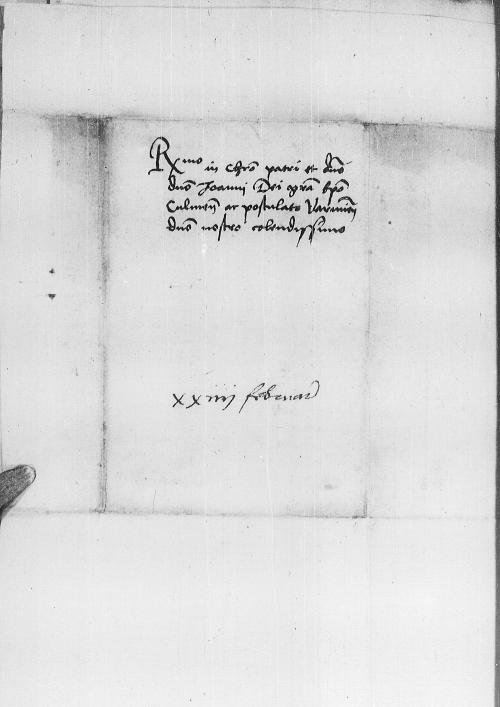 Rxmo in Chro patri et dno
dno Joanni Dei gra Epo
Culmen ac postulato Varmien
dno nostro colendissimo
xxiiij februarii